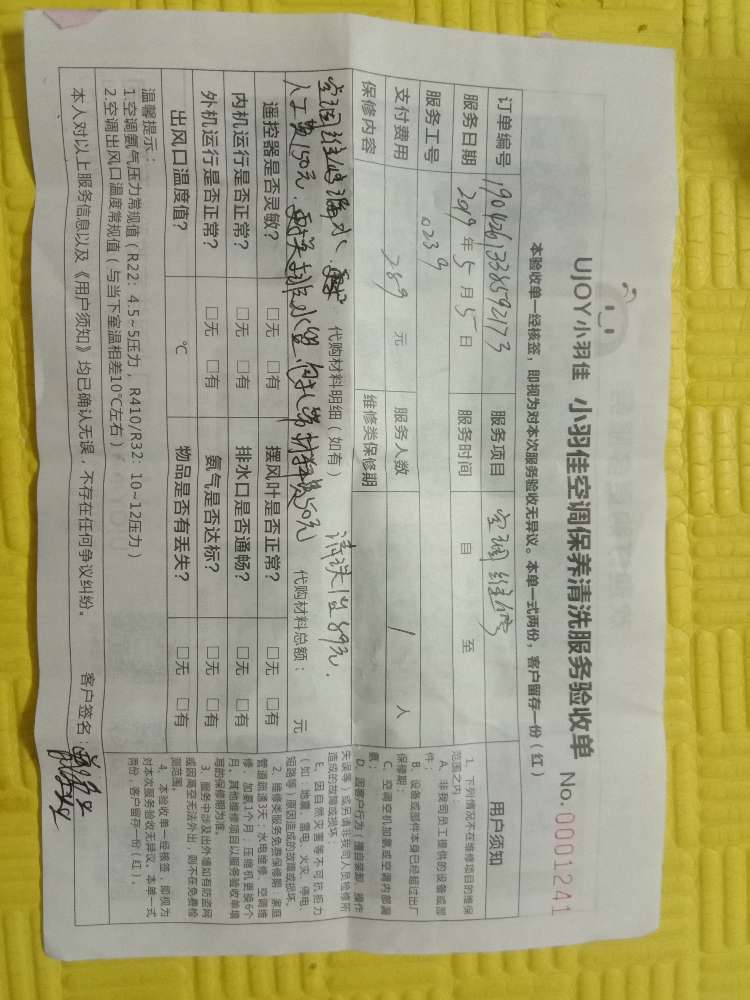 UJOY小羽佳 小羽佳空调保养清洗服务验收单 No.0001241
本验收单一经核签，即视为对本次服务验收无异议。本单一式两份，客户留存一份（红）
订单编号 1904261338592173 服务项目 空调维修
服务日期 2019年5月5日 服务时间 自 至
服务工号 0239
支付费用 289 元 服务人数 1 人
保修内容 维修类保修期
代购材料明细（如有）
空调维修漏水 清洗付89元.
人工费150元 排水管 材料费50元 代购材料总额： 元
遥控器是否灵敏？ □无 □有 摆风叶是否正常？ □无 □有
内机运行是否正常？ □无 □有 排水口是否通畅？ □无 □有
外机运行是否正常？ □无 □有 氨气是否达标？ □无 □有
出风口温度值？ ℃ 物品是否有丢失？ □无 □有
温馨提示：
1.空调氨气压力常规值（R22：4.5~5压力，R410/R32：10~12压力）
2.空调出风口温度常规值（与当下室温相差10℃左右）
本人对以上服务信息以及《用户须知》均已确认无误，不存在任何争议纠纷。 客户签名：
用户须知
1、下列情况不在维修项目的维保
范围之内：
A、非我司员工提供的设备或部
件；
B、设备或部件本身已经超过出厂
保修期；
C、空调空机加氨或空调内部漏
氨；
D、因客户行为（擅自装卸、操作
失误等）或另请非我司人员检修所
造成的故障或损坏；
E、因自然灾害等不可抗拒力
（如：地震、雷电、火灾、停电、
短路等）原因造成的故障或损坏。
2、维修类服务免费保修期：家庭
管道疏通3天；水电维修、空调维
修、加氨1个月，压缩机更换6个
月。其他维修项目以服务验收单填
写的保修期为准。
3、服务中涉及出外墙如有防盗网
或因高空无法外出，则不在免费检
测范围。
4、本验收单一经核签，即视为
对本次服务验收无异议。本单一式
两份，客户留存一份（红）。